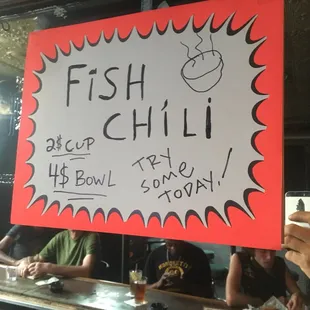 FiSH
CHiLi
2$ CUP
4$ BOWL
TRY
SOME
TODAY!